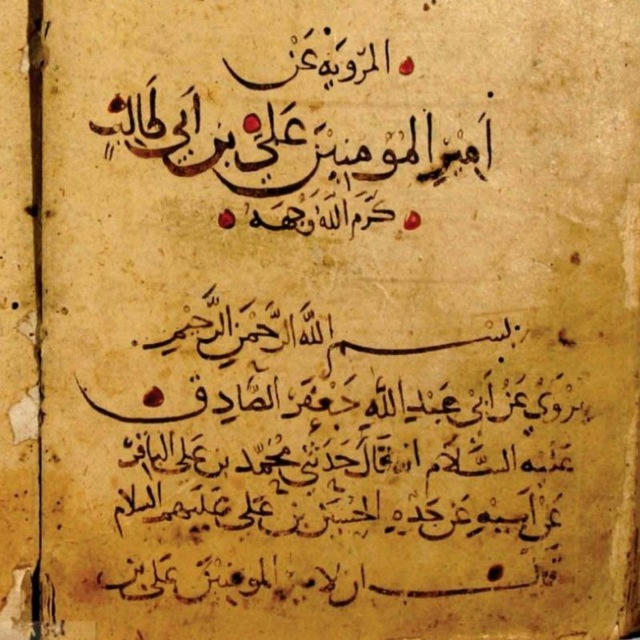 المروية عن
أمير المومنين علي بن أبي طالب
كرم الله وجهه
بسم الله الرحمن الرحيم
يروى عن أبي عبد الله جعفر الصادق
عليه السلام انه قال حدثني محمد بن علي الباقر
عن أبيه عن جده الحسين بن علي عليهم السلام
قال ان لامير المومنين علي بن